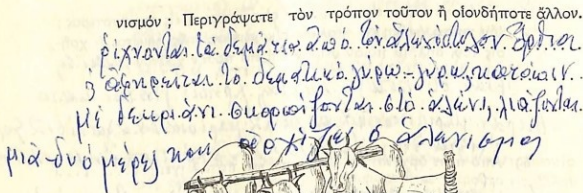 νισμόν ; Περιγράψατε τὸν τρόπον τοῦτον ἢ οἱονδήποτε ἄλλον.
ρίχνονται τὰ δεμάτια ἀπό τὸν ὄρθια
ἀφαιρεῖται τὸ δεματικό γύρω-γύρω κατόπιν
μέ δεκριάνι σκορπίζονται στό ἁλώνι, λιάζονται
μιά-δυό μέρες και ἀρχίζει ὁ ἁλωνισμός